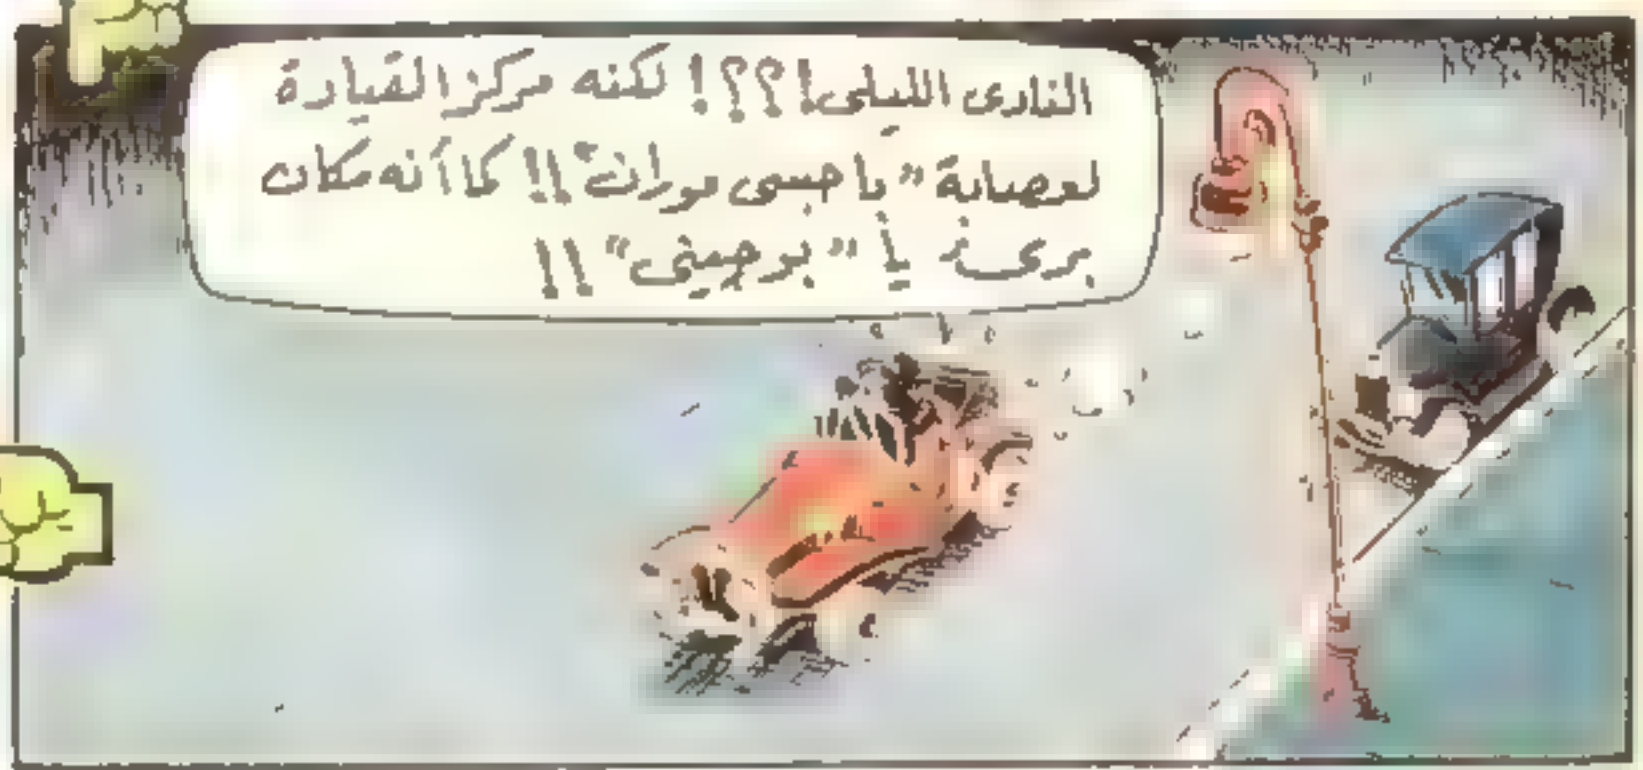 النادى الليلى!؟؟! لكنه مركز القيادة
لعصابة "باجسى موران"!! كما أنه مكان
برىء يا "برجينى"!!